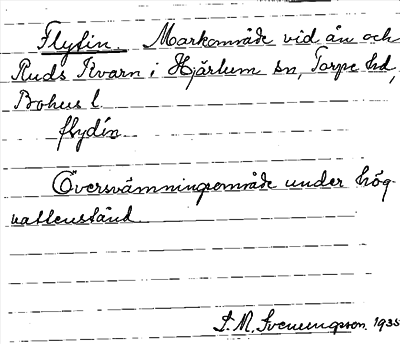 Flytin. Markområde vid ån och
Ruds Kvarn i Hjärtum sn, Torpe hd,
Bohus l.
flỳdín
Översvämningsområde under hög-
vattenstånd.
S. M. Svenungsson 1935